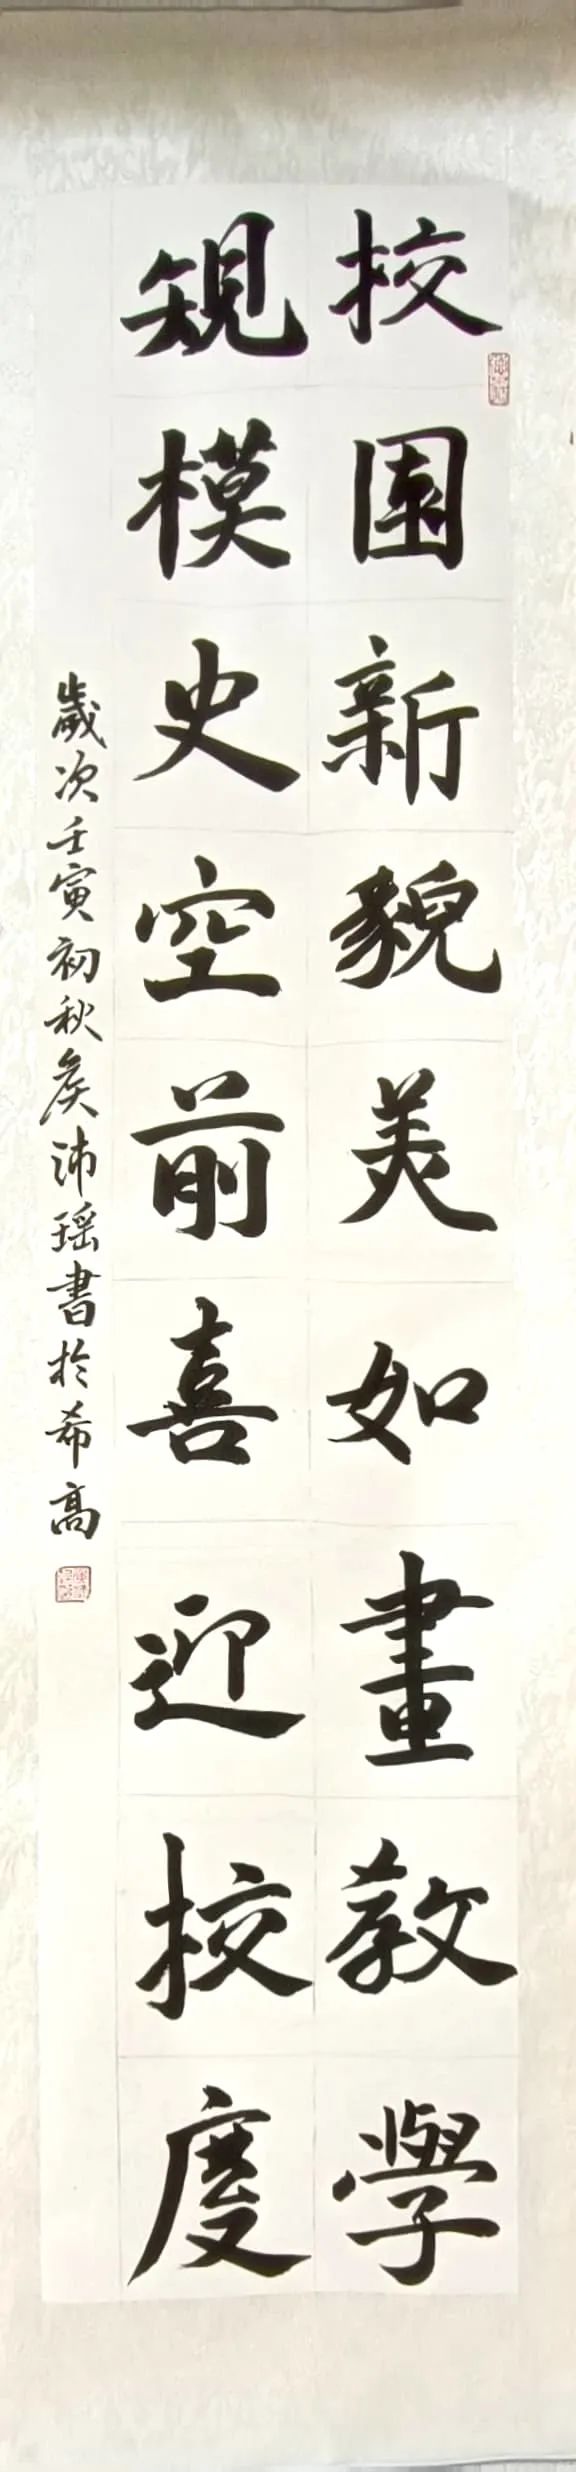 校園新貌美如畫教學
規模史空前喜迎校度
歲次壬寅初秋侯沛瑶書於希高